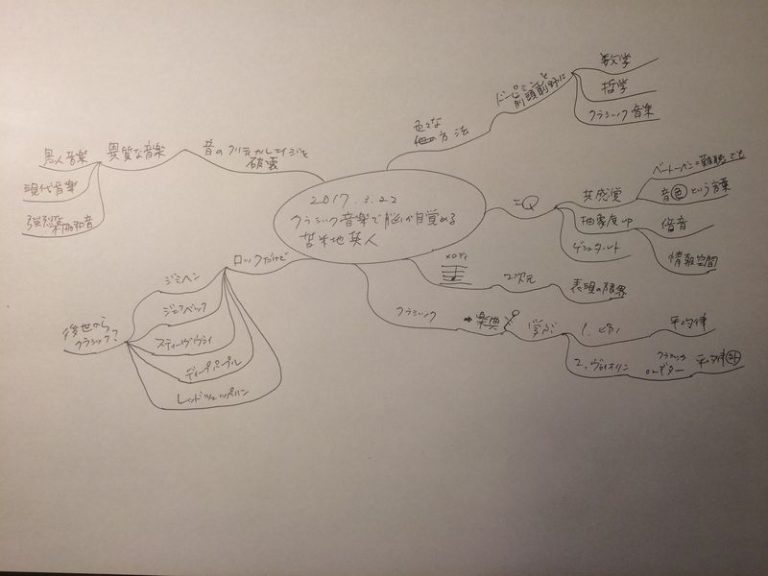 2017.3.22
クラシック音楽で脳が目覚める
苫米地英人
色々な
他の方法
ドーパミンを
前頭前野に
数学
哲学
クラシック音楽
=Q
共感覚
ベートーベン=難聴でも
音色という言葉
抽象度up
倍音
情報空間
ゲシュタルト
メロディ
2次元
表現の限界
クラシック
→楽典
学ぶ
1. ピアノ
平均律
2. ヴァイオリン
クラシック
orギター
平均律
ロックだけど
ジミヘン
ジェフベック
スティーヴヴァイ
ディープパープル
レッドツェッペリン
後世から
クラシック?
音のクリティカルエイジを
破壊
異質な音楽
黒人音楽
現代音楽
不協和音